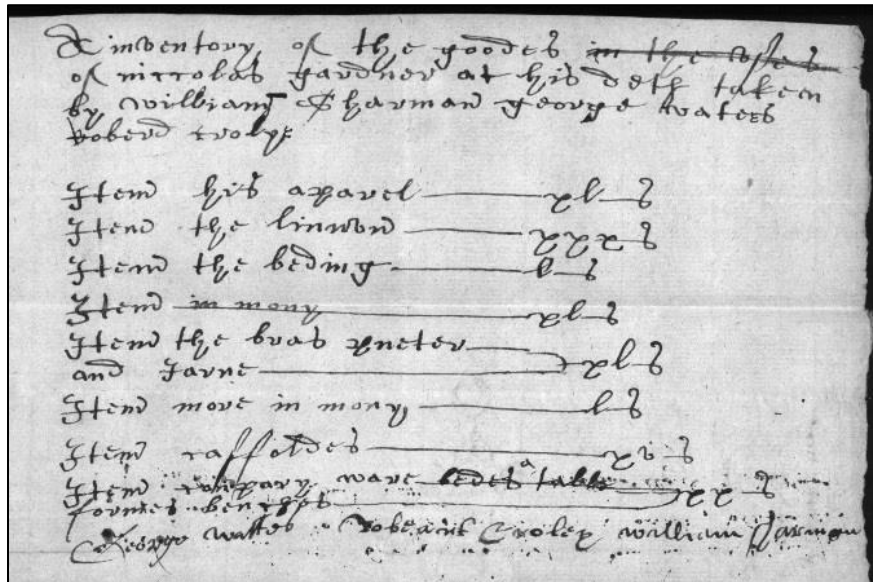 A inventory of the goodes in the
of nicrolas gardner at his deth taken
by william Sharman george waters
roberd croly
Item his aparel xl s
Item the linnon xxx s
Item the beding l s
Item in mony xl s
Item the bras pueter
and Iarne xl s
Item more in mony l s
Item raffoldes xv s
Item ware bedes a table xx s
formes benches
George wattes Robeart Croley william Sharman